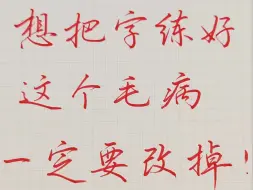 想把字练好
这个毛病
一定要改掉!